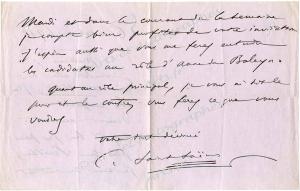 Mardi et dans le courant de la semaine
je compte bien profiter de votre invitation
J'espère aussi que vous me ferez entendre
les candidates au rôle d'Anne de Boleyn.
quant au rôle principal, je vous ai dit le
pour et le contre, vous ferez ce que vous
voudrez
votre tout dévoué
C. Saint-Saëns